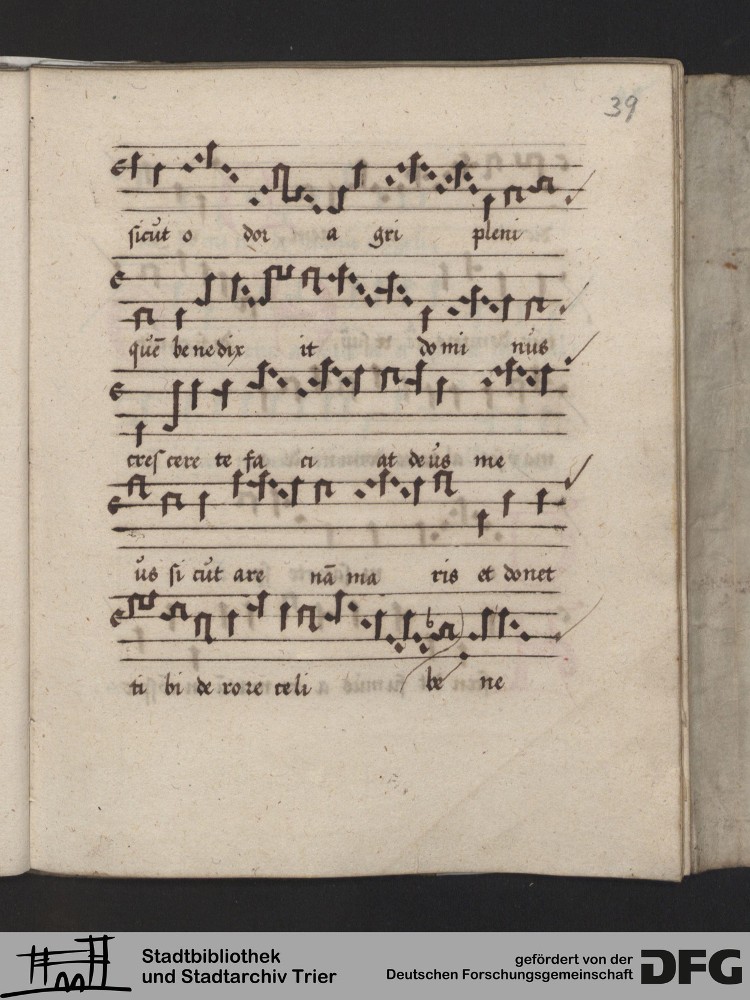 39
sicut o dor a gri pleni
quē benedix it domi nus
cres cere te fa ci at deus me
us si cut are nā ma ris et donet
ti bi de rore celi be ne
Stadtbibliothek
und Stadtarchiv Trier
gefördert von der
Deutschen Forschungsgemeinschaft
DFG